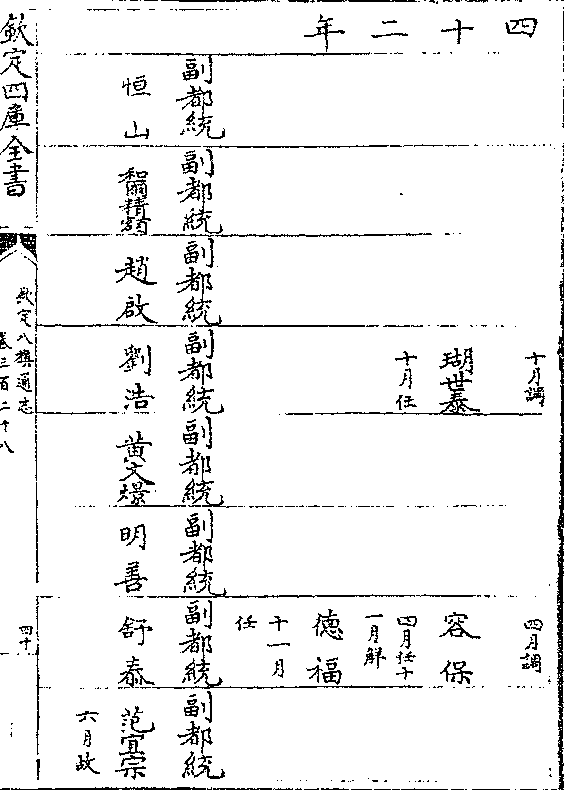 四十二年
副都統
恒山
副都統
副都統
趙啟
十月調
瑚世泰
十月任
副都統
劉浩
副都統
黄文煤
副都統
明善
四月調
容保
四月任十
一月解
德福
十一月
任
副都統
舒泰
副都統
范宜宗
六月故
欽定四庫全書
欽定八旗通志
卷三百二十八
四十